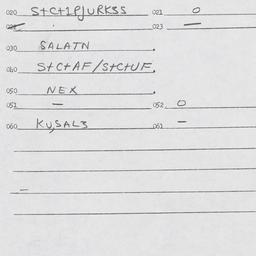 020 S+C+1PJURKSS 021 0
022 023 —
030 SALATN
040 S+C+AF/S+C+UF
050 NEX
051 — 052 0
060 KU,SAL3 061 —